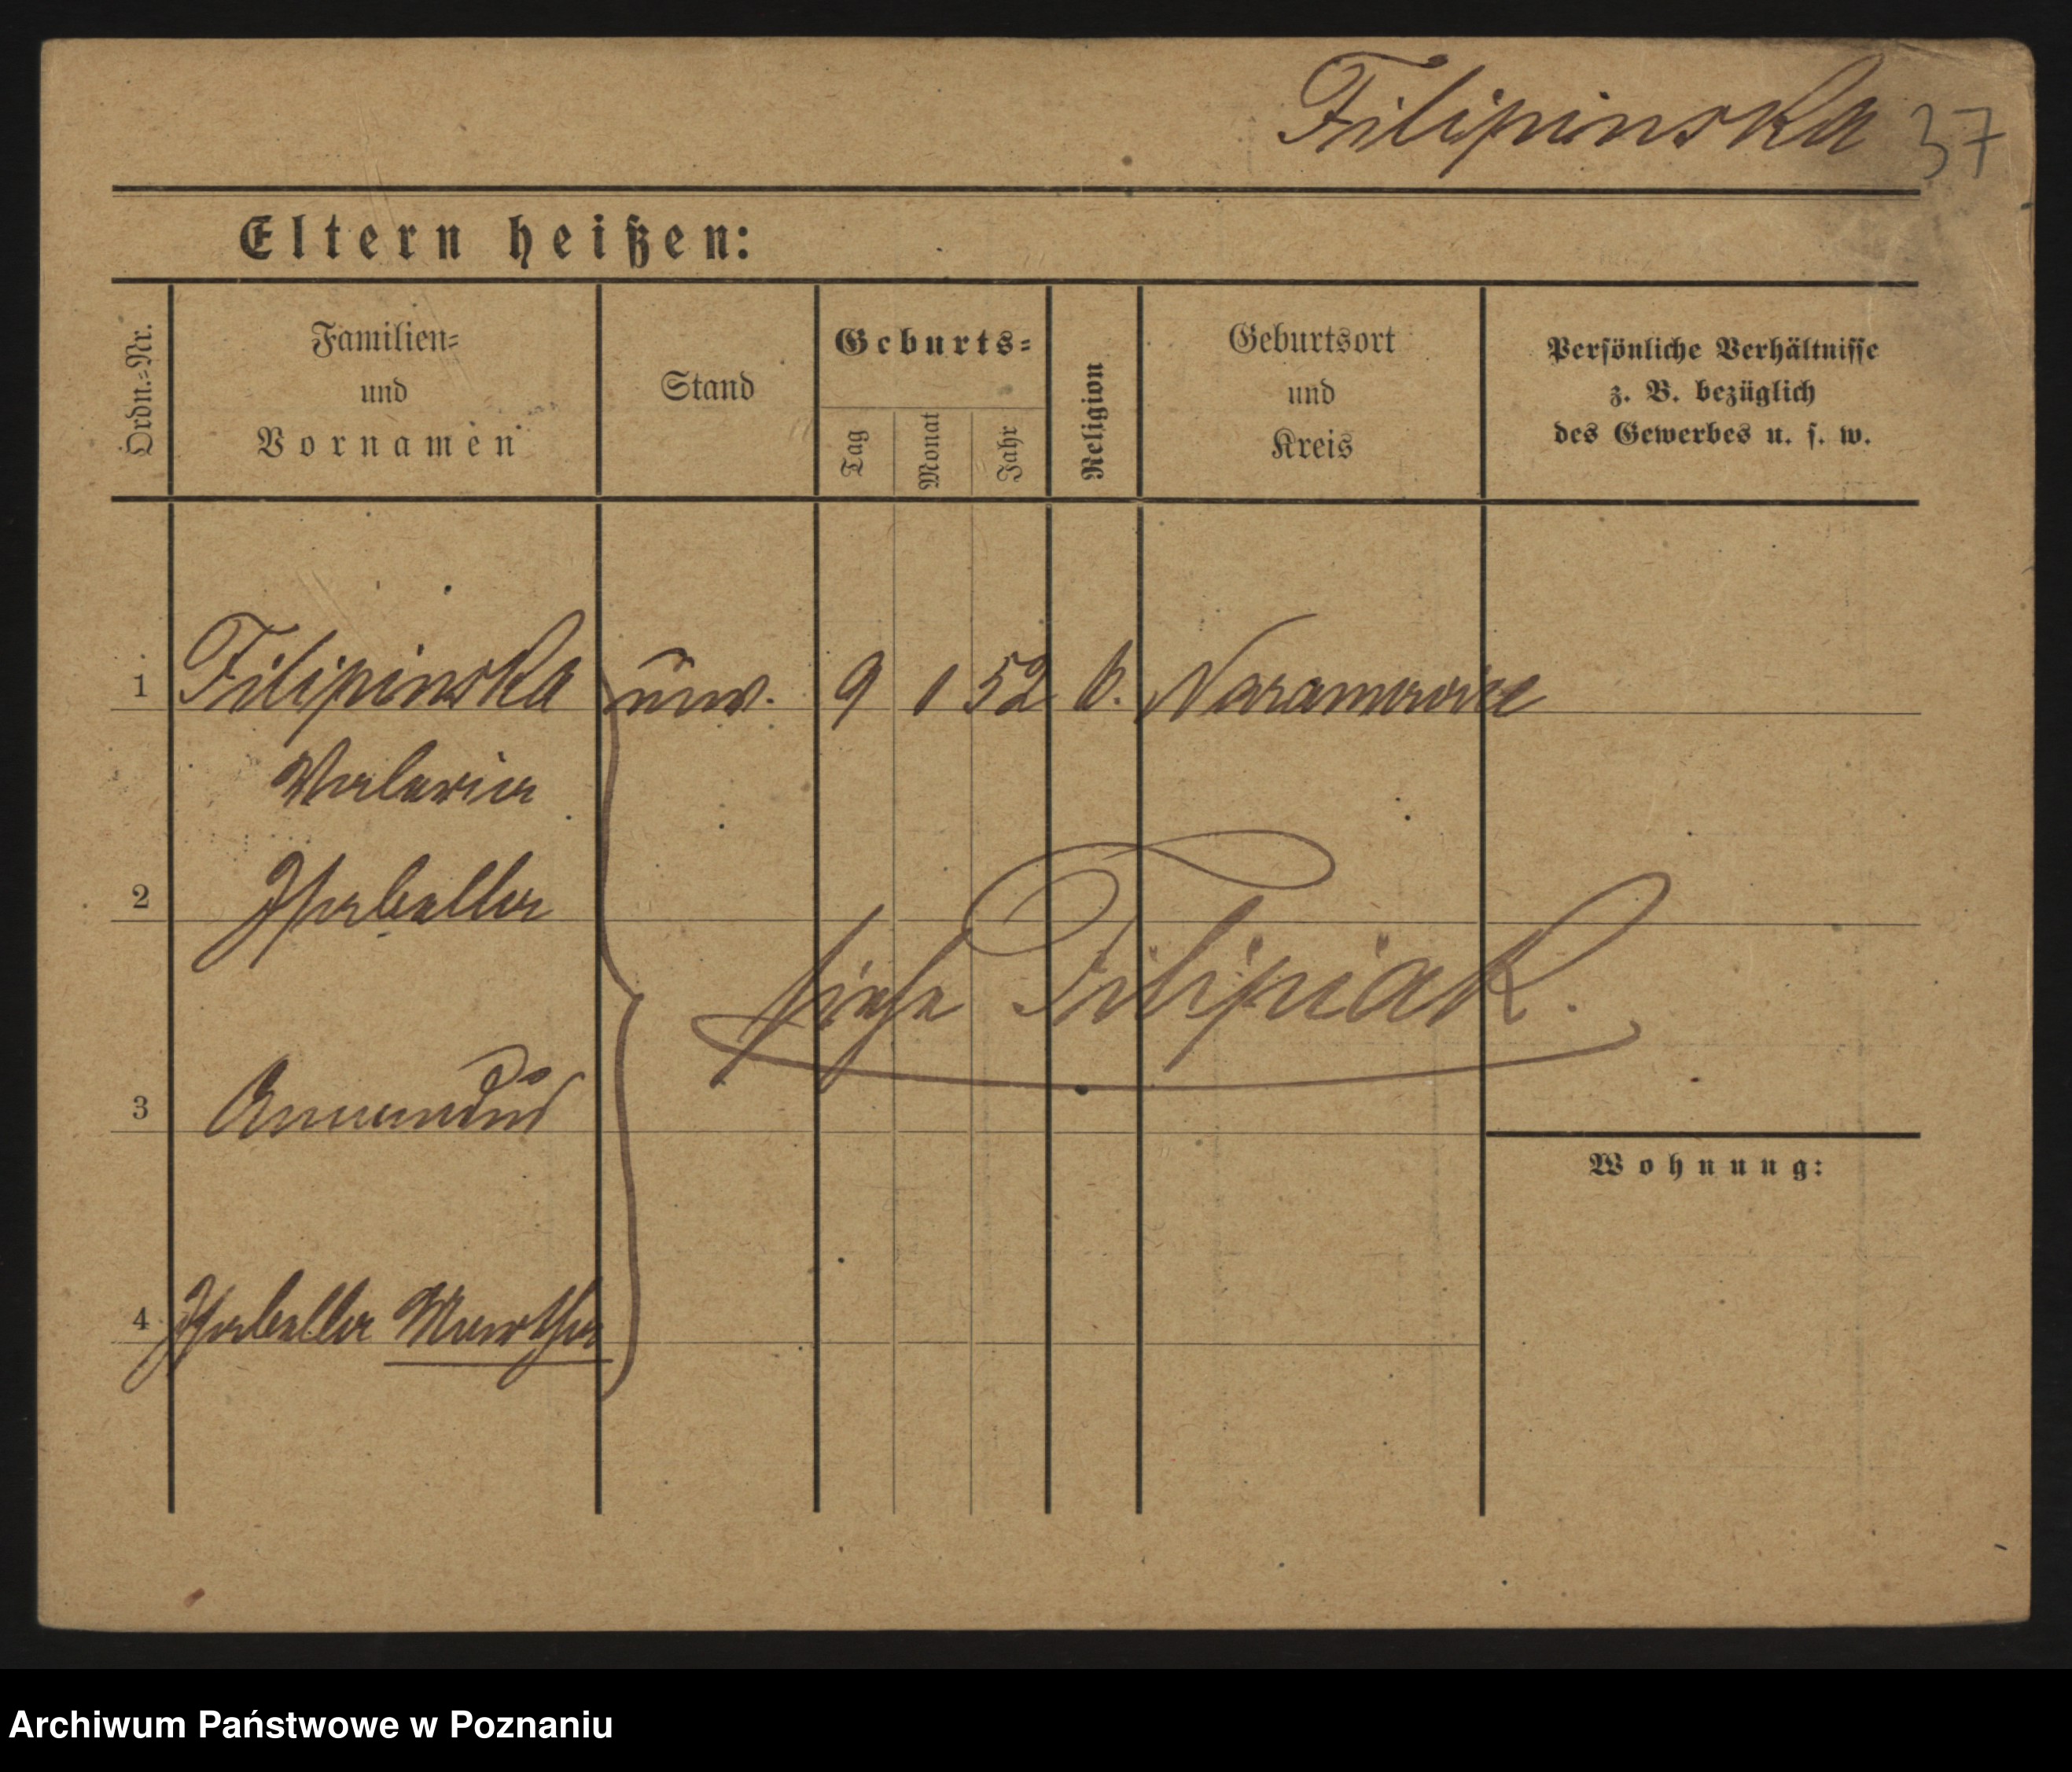 Filipinska 37
Eltern heißen:
Ordn.-Nr. Familien- und Vornamen Stand Geburts- Tag Monat Jahr Religion Geburtsort und Kreis Persönliche Verhältnisse z. B. bezüglich des Gewerbes u. s. w.
1 Filipinska unv. 9 1 52 k. Naramowice
Valeria
2 Isabella
siehe Filipiak.
3
Wohnung:
4 Isabella Martha
Archiwum Państwowe w Poznaniu